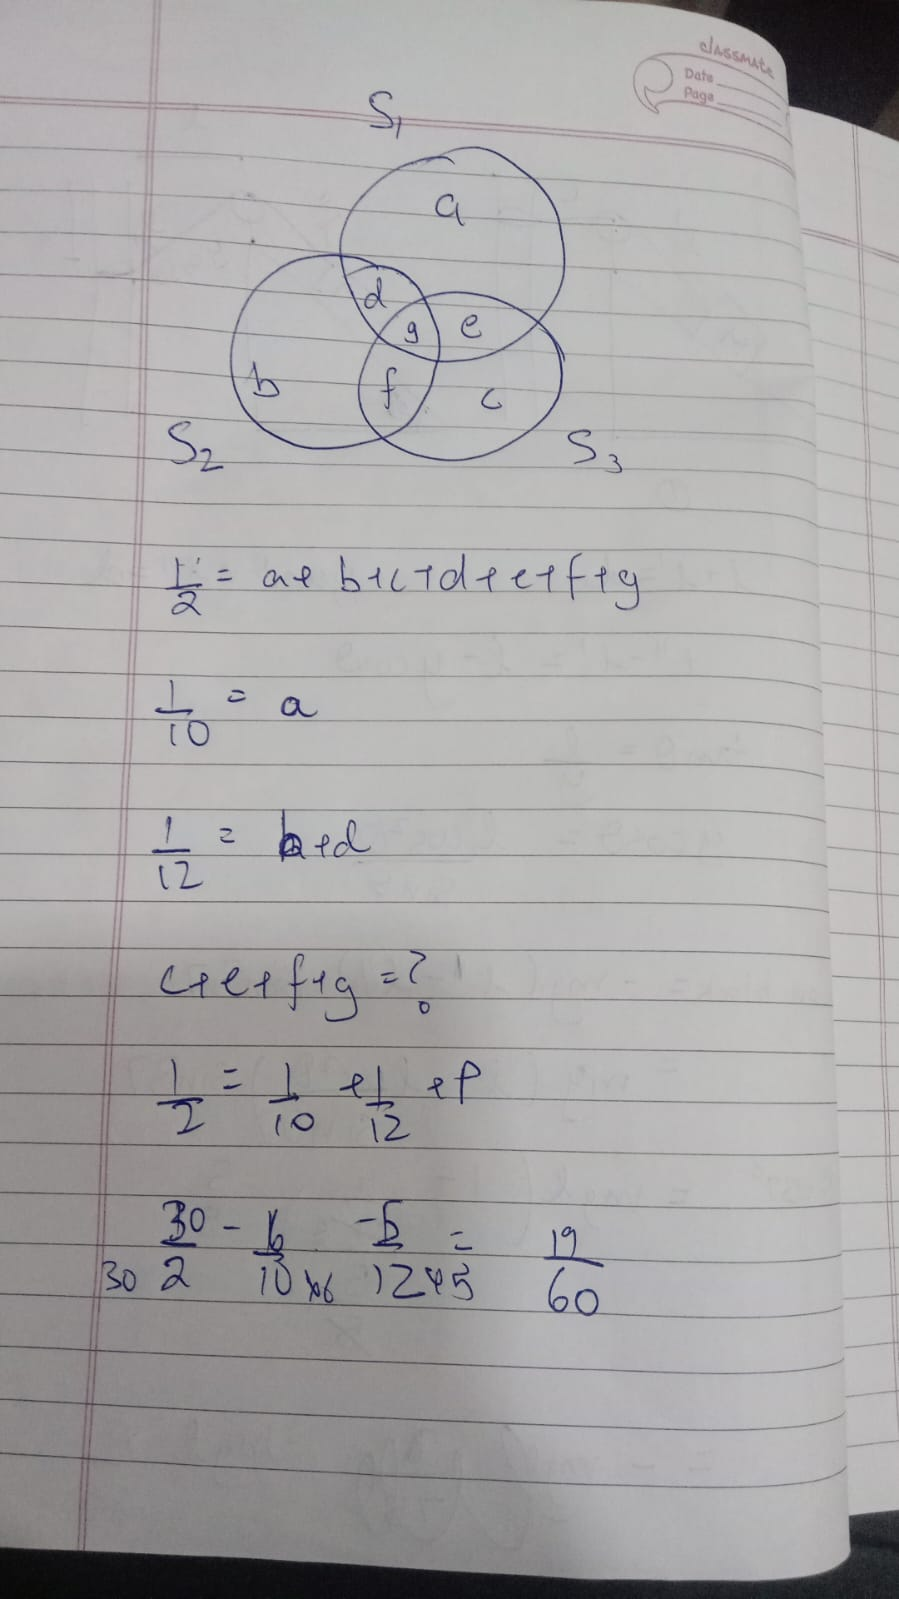 classmate
Date
Page
S₁
a
d
g e
b f c
S₂ S₃
1/2 = a+ b+c+d+e+f+g
1/10 = a
1/12 = b+d
c+e+f+g = ?
1/2 = 1/10 + 1/12 + P
30 30/2 - 6/10×6 - 5/12×5 = 19/60